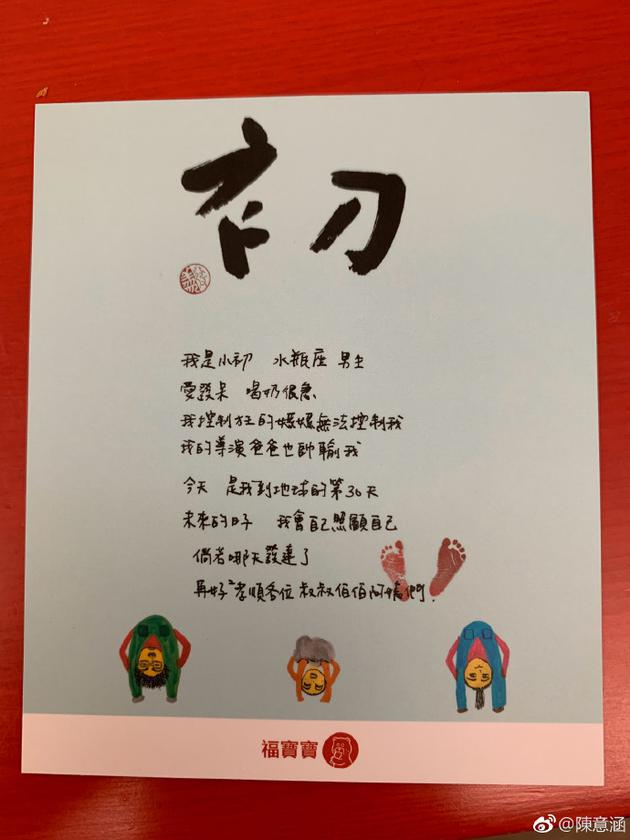 初
我是小初 水瓶座 男生
愛發呆 喝奶很急
我控制狂的媽媽無法控制我
我的導演爸爸也帥輸我
今天 是我到地球的第30天
未來的日子 我會自己照顧自己
倘若哪天發達了
再好好孝順各位叔叔伯伯阿姨們.
福寶寶
@陳意涵